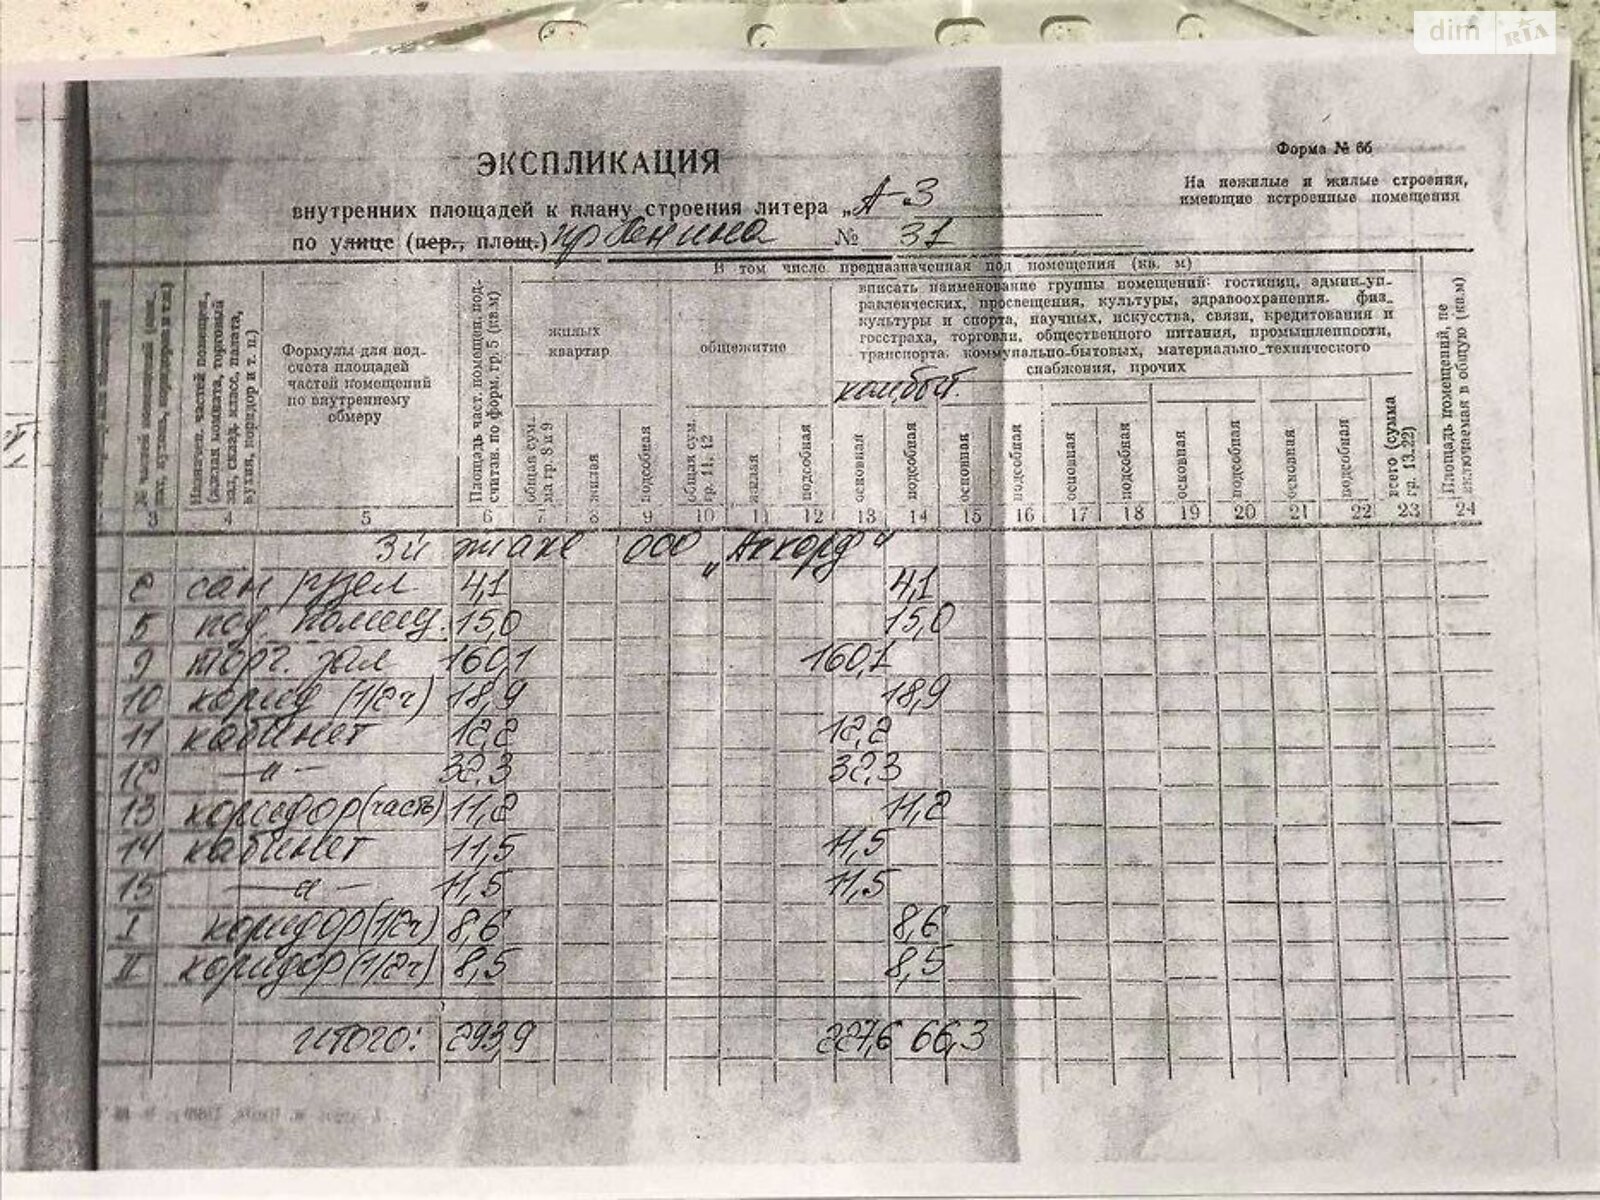 dim RIA
Форма № 66
ЭКСПЛИКАЦИЯ
На нежилые и жилые строения,
имеющие встроенные помещения
внутренних площадей к плану строения литера „А-3
по улице (пер., площ.) пр Ленина № 31
В том числе предназначенная под помещения (кв. м)
вписать наименование группы помещений: гостиниц, админ-уп-
равленческих, просвещения, культуры, здравоохранения. физ-
культуры и спорта, научных, искусства, связи, кредитования и
госстраха, торговли, общественного питания, промышленности,
транспорта, коммунально-бытовых, материально-технического
снабжения, прочих
жилых
квартир
общежитие
Формулы для под-
счета площадей
частей помещений
по внутреннему
обмеру
Площадь част. помещен. под-
считан. по форм. гр. 5 (кв.м)
общая сум.
ма гр. 8 и 9
жилая
подсобная
общая сум.
гр. 11, 12
жилая
подсобная
основная
подсобная
основная
подсобная
основная
подсобная
основная
подсобная
основная
подсобная
всего (сумма
гр. 13.22)
Площадь помещений, не
включаемая в общую (кв.м)
3 4 5 6 7 8 9 10 11 12 13 14 15 16 17 18 19 20 21 22 23 24
3й этаж ООО „Аккорд“
2 сан узел 4,1 4,1
5 под. помещ. 15,0 15,0
9 торг. зал 160,1 160,1
10 корид (1/2ч) 18,9 18,9
11 кабинет 12,2 12,2
12 —"— 32,3 32,3
13 коридор (часть) 11,2 11,2
14 кабинет 11,5 11,5
15 —"— 11,5 11,5
I коридор (1/2ч) 8,6 8,6
II коридор (1/2ч) 8,5 8,5
Итого: 293,9 227,6 66,3